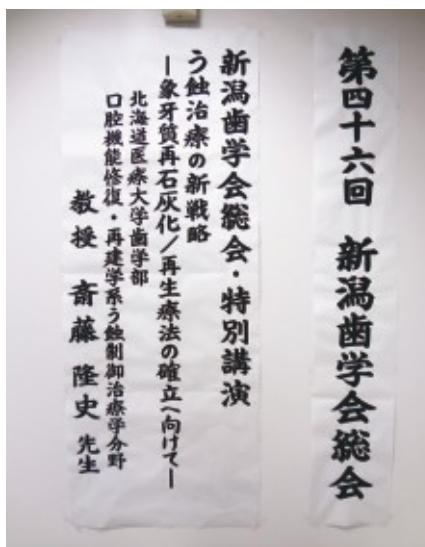 第四十六回 新潟歯学会総会
新潟歯学会総会・特別講演
う蝕治療の新戦略
―象牙質再石灰化／再生療法の確立へ向けて―
北海道医療大学歯学部
口腔機能修復・再建学系う蝕制御治療学分野
教授 斎藤隆史 先生